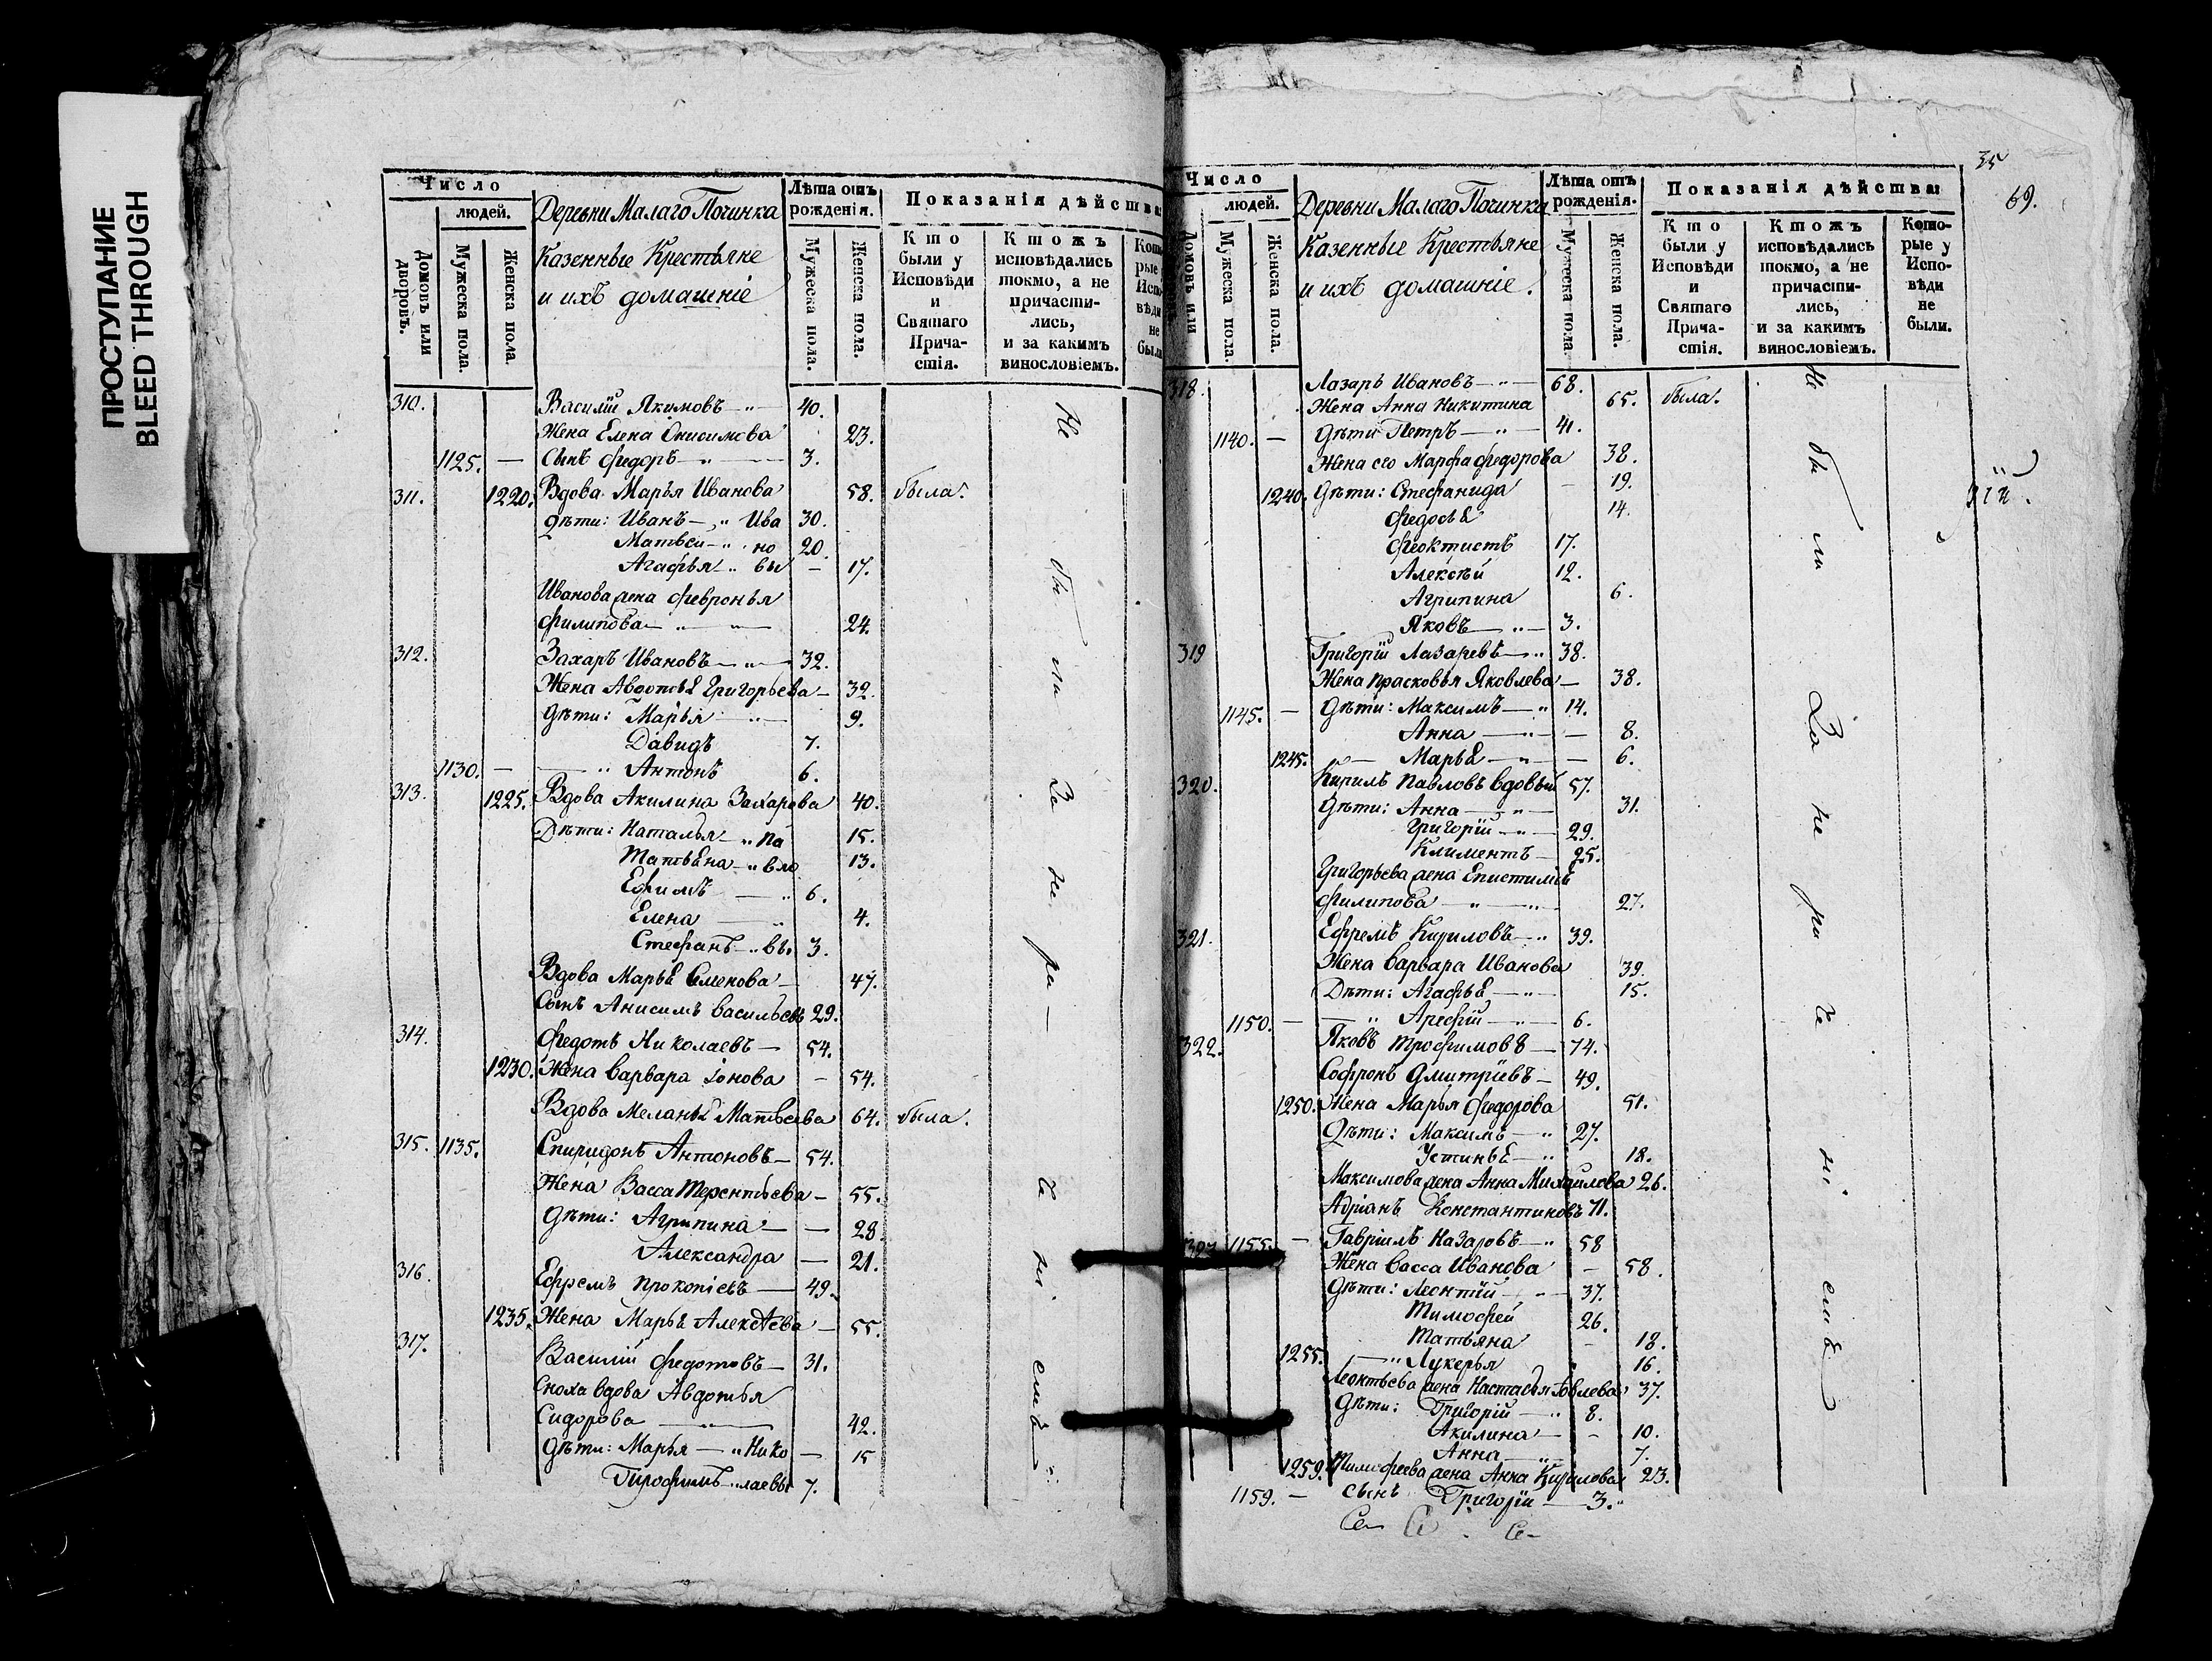 ПРОСТУПАНИЕ
BLEED THROUGH
Число
людей.
Домовъ или дворовъ.
Мужеска пола.
Женска пола.
Деревни Малаго Починка
Казенные Крестьяне
и ихъ домашніе
Лѣта отъ рожденія.
Мужеска пола.
Женска пола.
Показанія дѣйства
Кто были у Исповѣди и Святаго Причастія.
Ктожъ исповѣдались токмо, а не причастились, и за какимъ винословіемъ.
310. Василій Якимовъ 40.
Жена Елена Онисимова 23.
1125. — Сынъ Федоръ 3.
311. 1220. Вдова Марья Иванова 58. была.
дѣти: Иванъ — Ива 30.
Матвеи — но 20.
Агафья — вы — 17.
Иванова жена Февронья
Филипова 24.
312. Захаръ Ивановъ 32.
Жена Авдотья Григорьева — 32.
дѣти: Марья 9.
Давидъ 7.
1130. — Антонъ 6.
313. 1225. Вдова Акилина Захарова 40.
Дѣти: Наталья — Па 15.
Татьяна — вло 13.
Ефимъ 6.
Елена 4.
Стефанъ — вы 3.
Вдова Марья Семенова — 47.
Сынъ Анисимъ Васильевъ 29.
314. Федотъ Николаевъ — 54.
1230. Жена Варвара Іонова — 54.
Вдова Меланья Матвеева 64. была.
315. 1135. Спиридонъ Антоновъ — 54.
Жена Васса Терентьева — 55.
дѣти: Агрипина — 28.
Александра — 21.
316. Ефремъ Прокопіевъ — 49.
1235. Жена Марья Алексѣева — 55.
317. Василій Федотовъ — 31.
Сноха вдова Авдотья
Сидорова 42.
дѣти: Марья — Нико — 15
Трофимъ — лаевы 7.
Не были За нерачениемъ
35
69.
Число
людей.
Домовъ или
Мужеска пола.
Женска пола.
Деревни Малаго Починка
Казенные Крестьяне
и ихъ домашніе.
Лѣта отъ рожденія.
Мужеска пола.
Женска пола.
Показанія дѣйства
Кто были у Исповѣди и Святаго Причастія.
Ктожъ исповѣдались токмо, а не причастились, и за какимъ винословіемъ.
Которые у Исповѣди не были.
318. Лазарь Ивановъ 68.
Жена Анна Никитина 65. была.
1140. — дѣти Петръ 41.
Жена его Марфа Федорова 38.
1240. дѣти: Стефанида — 19.
Федосья 14.
Феоктистъ 17.
Алексѣй 12.
Агрипина 6.
Яковъ 3.
319 Григорій Лазаревъ 38.
Жена Прасковья Яковлева — 38.
1145. — дѣти: Максимъ 14.
Анна — 8.
1245. — Марья — 6.
320. Кирилъ Павловъ вдовый 57.
дѣти: Анна 31.
Григорій 29.
Климентъ 25.
Григорьева жена Епистимья
Филипова 27.
321. Ефремъ Кириловъ 39.
Жена Варвара Иванова 39.
Дѣти: Агафья 15.
1150. — Арефій 6.
322. Яковъ Трофимовъ — 74.
Софронъ Дмитріевъ — 49.
1250. Жена Марья Федорова 51.
Дѣти: Максимъ 27.
Устинья 18.
Максимова жена Анна Михайлова 26.
Адріанъ Константиновъ 71.
323 1155. — Гавріилъ Назаровъ 58
Жена Васса Иванова — 58.
дѣти: Леонтій 37.
Тимофей 26.
Татьяна — 18.
1255. — Лукерья 16.
Леонтьева жена Настасья 37.
дѣти: Григорій 8.
Акилина — 10.
Анна 7.
1259. Тимофеева жена Анна Кирилова 23.
1159. — сынъ Григорій 3.
Не были За нерачениемъ